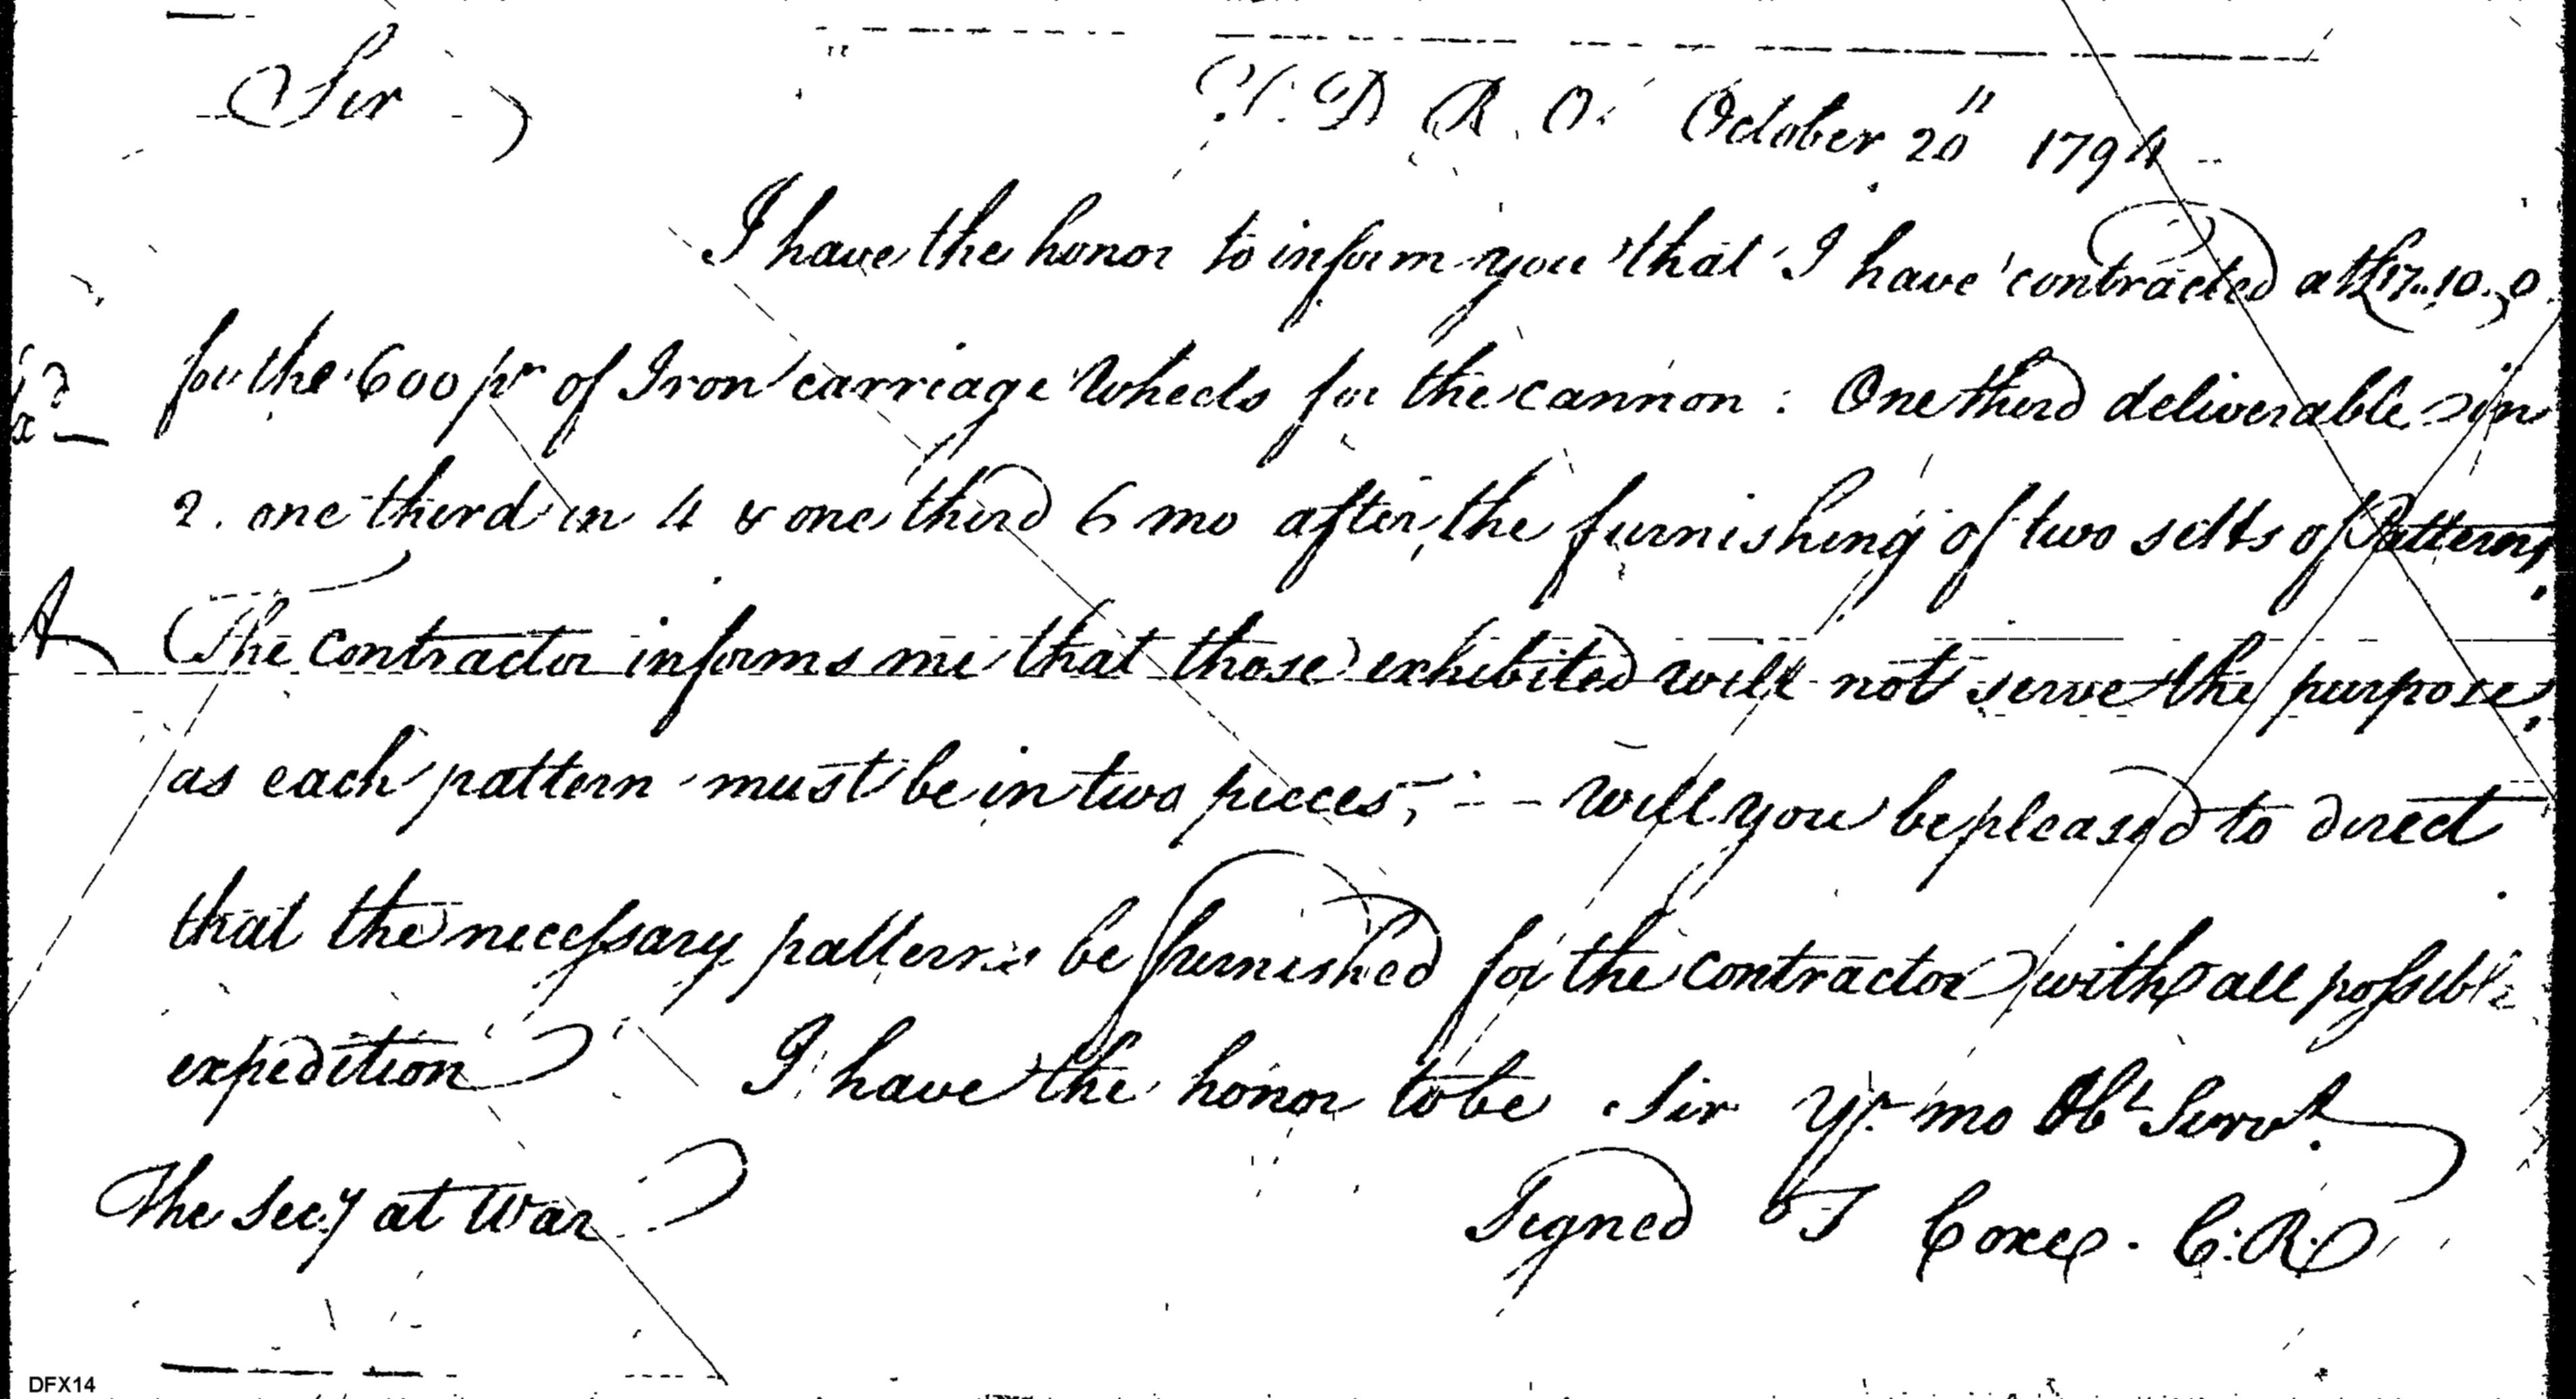 Sir
T. D R. O. October 20" 1794
I have the honor to inform you that I have contracted at £17..10..0
for the 600 pr of Iron carriage Wheels for the cannon: One third deliverable in
2. one third in 4 & one third 6 mo after, the furnishing of two setts of Patterns.
The contractor informs me that those exhibited will not serve the purpose,
as each pattern must be in two pieces, - - will you be pleased to direct
that the necessary patterns be furnished for the contractor with all possible
expedition I have the honor to be Sir Yr. mo Obt Servt.
The Secy at War Signed T Coxe. C:R
DFX14